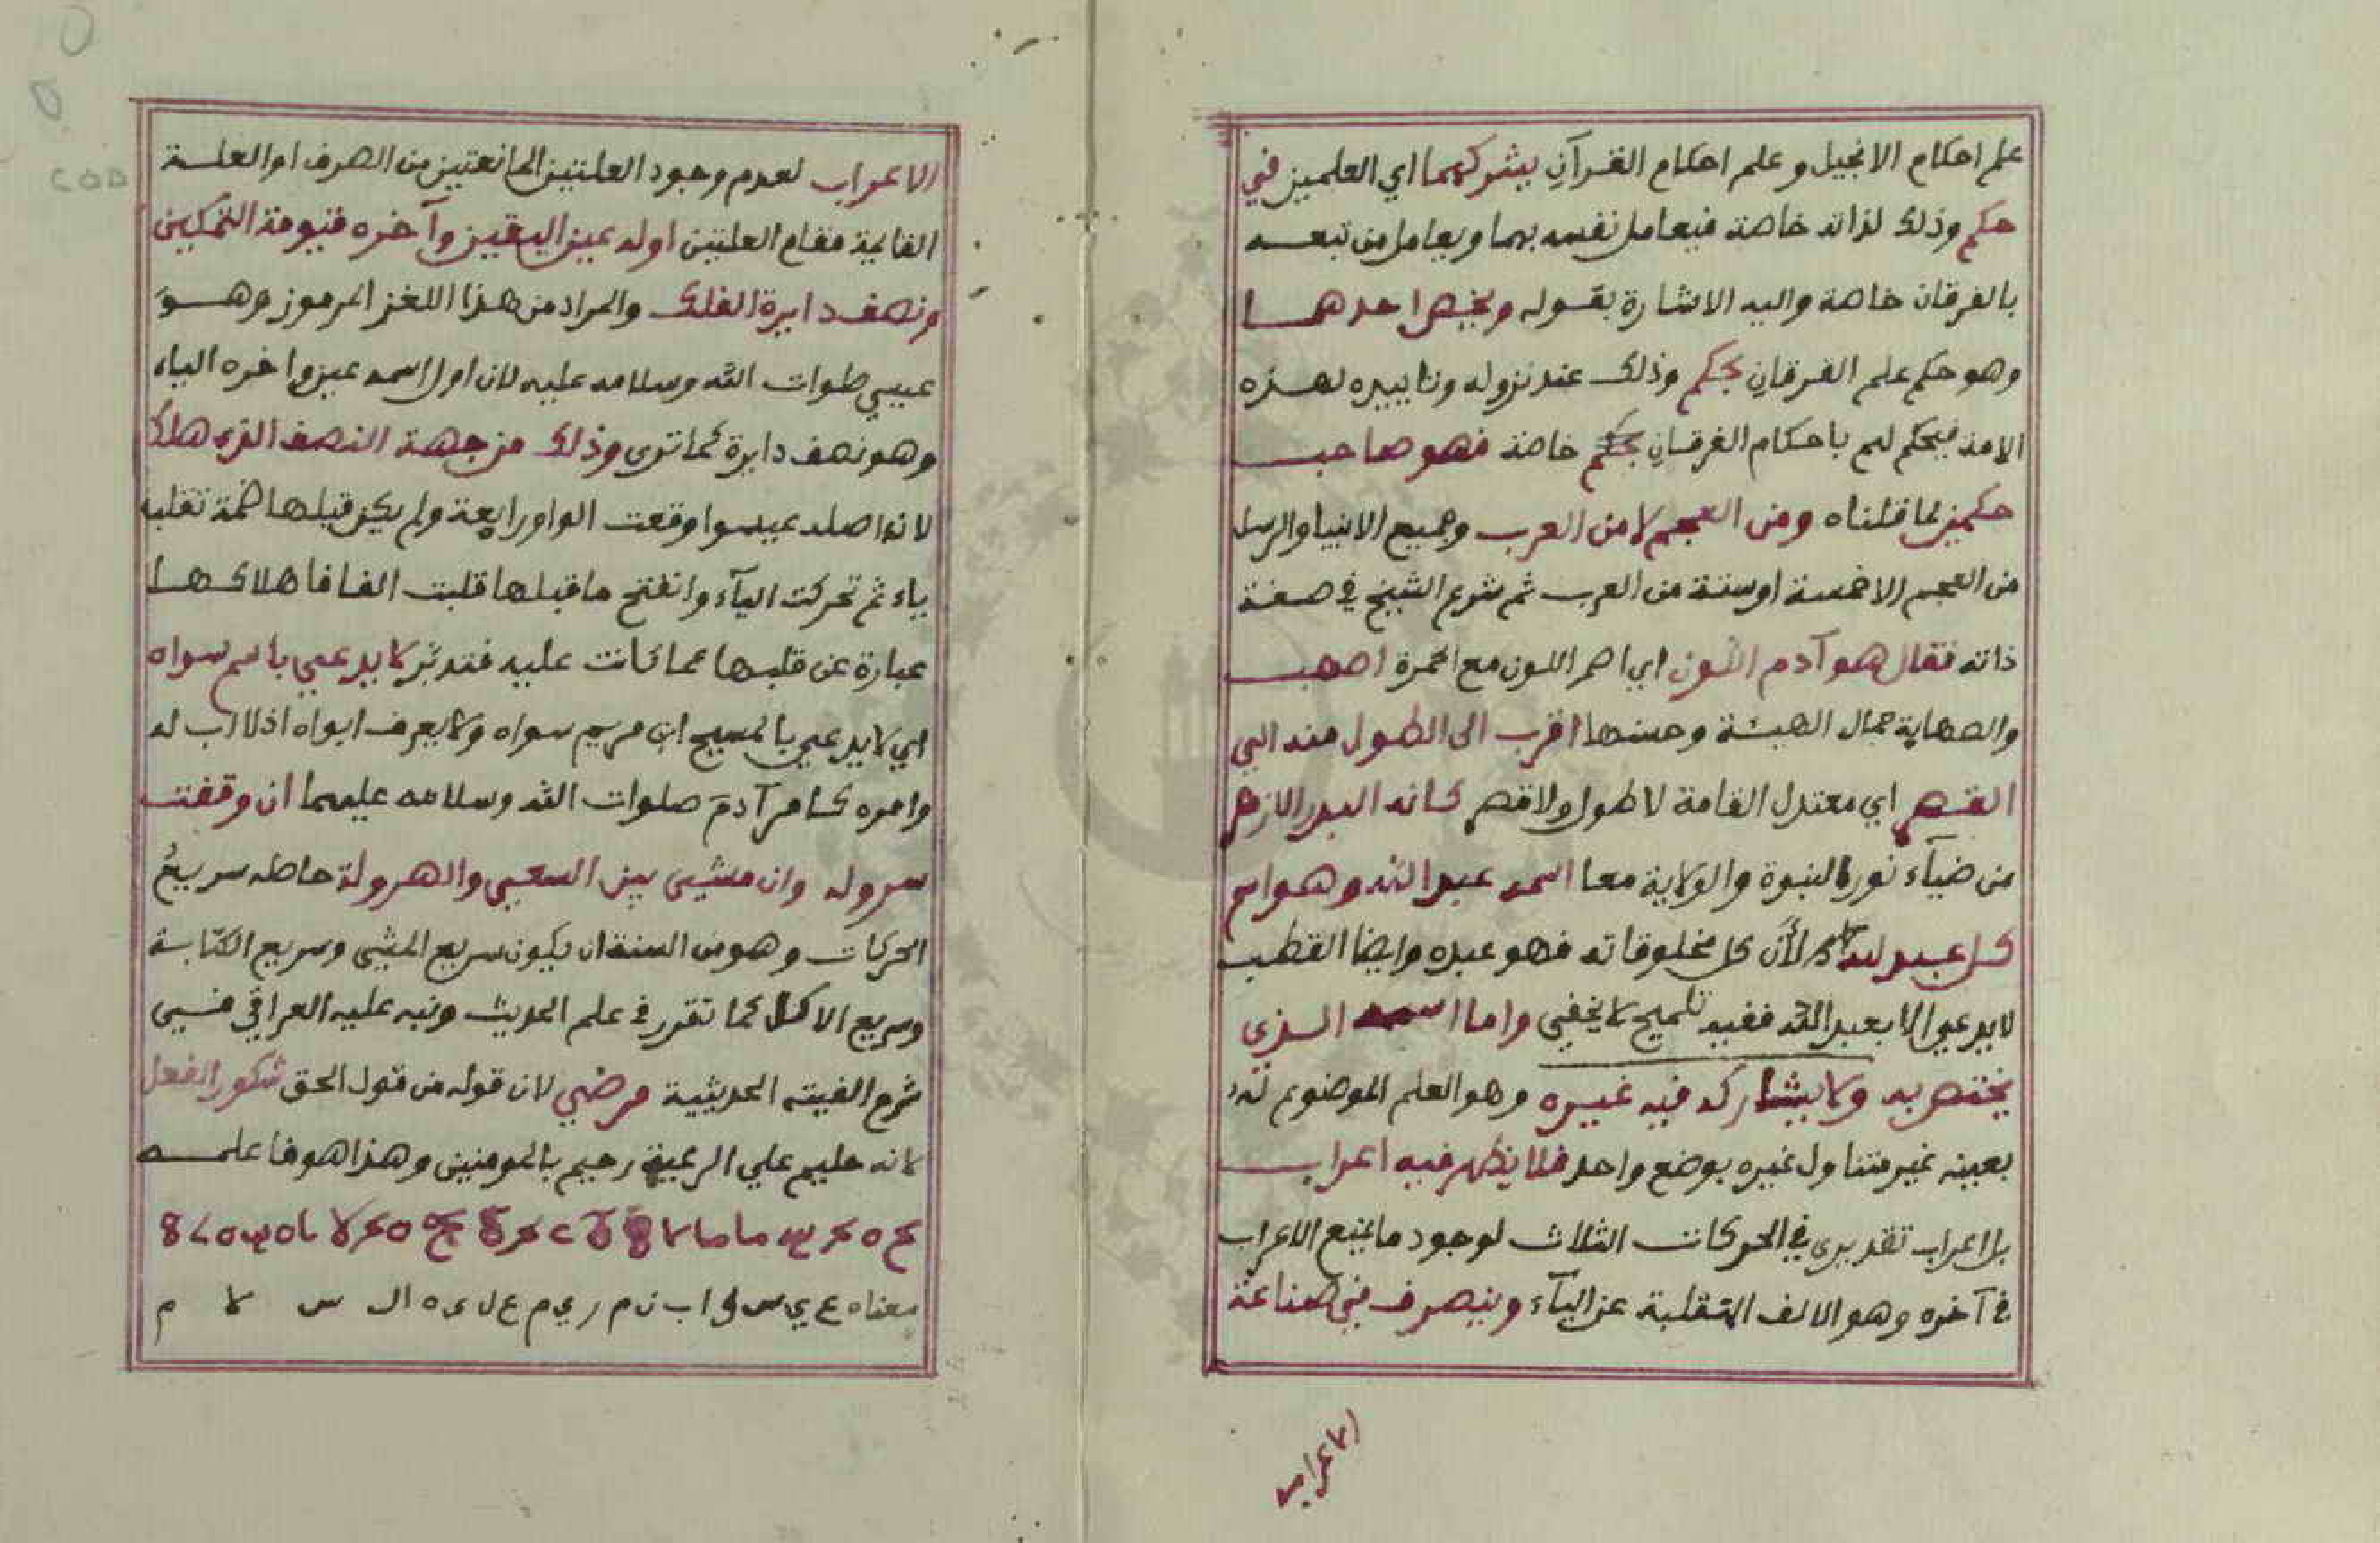 علم احكام الانجيل وعلم احكام القرآن يشركهما اي العلمين في
حكم وذلك لذاته خاصة فيعامل نفسه بهما ويعامل من تبعه
بالفرقان خاصة واليه الاشارة بقوله ويخص احدهما
وهو حكم علم الفرقان بحكم وذلك عند نزوله وتاييده لهذه
الامة فيحكم لهم باحكام الفرقان بحكم خاصة فهو صاحب
حكمين لما قلناه ومن العجم لا من العرب وجميع الانبيا والرسل
من العجم الا خمسة او ستة من العرب ثم شرع الشيخ في صفة
ذاته فقال هو آدم اللون اي احمر اللون مع الحمرة اصهب
والصهاية جمال الهيئة وحسنها اقرب الى الطول منه الي
القصر اي معتدل القامة لا طول ولا قصر كانه البدر الازهر
من ضيآء نوره النبوة والولاية معا اسمه عبد الله وهو اسم
كل عبد لله لأن كل مخلوقاته فهو عبده وايضا القطب
لا يدعي الا بعبد الله ففيه تلميح لا يخفي واما اسمه الذي
يختص به ولا يشاركه فيه غيره وهو العلم الموضوع له
بعينه غير متناول غيره بوضع واحد فلا يظهر فيه اعراب
بل اعراب تقديرى في الحركات الثلاث لوجود ما يمنع الاعراب
في آخره وهو الالف المنقلبة عن اليآء وينصرف في صناعة
الاعراب
الاعراب لعدم وجود العلتين المانعتين من الصرف او العلة
القايمة مقام العلتين اوله عين اليقين وآخره قيومة التمكين
ونصف دايرة الفلك والمراد من هذا اللغز المرموز وهو
عيسي صلوات الله وسلامه عليه لان اول اسمه عين واخره الياء
وهو نصف دايرة كما ترى وذلك من جهة النصف الذى هلك
لانه اصله عيسوا وقعت الواو رابعة ولم يكن قبلها ضمة تقلبه
ياء ثم تحركت اليآء وانفتح ما قبلها قلبت الفا فاهلاكها
عبارة عن قلبها عما كانت عليه فتدبر لا يدعي باسم سواه
اي لا يدعي بالمسيح ابن مريم سواه ولا يعرف ابواه اذ لا اب له
وامره كامر آدم صلوات الله وسلامه عليهما ان وقفت
سروله وان مشيى بين السعي والهرولة حاطه سريع
الحركات وهو من السنة ان يكون سريع المشي وسريع الكتابة
وسريع الاكل كما تقرر في علم الحديث ونبه عليه العراقي في
شرح الفيته الحديثية مرضي لان قوله من قول الحق شكور الفعل
لانه حليم علي الرعية رحيم بالمومنين وهذا هو فاعلمه
معناه ع ي س ي ا ب ن م ر ي م ع ل ي ه ال س لا م